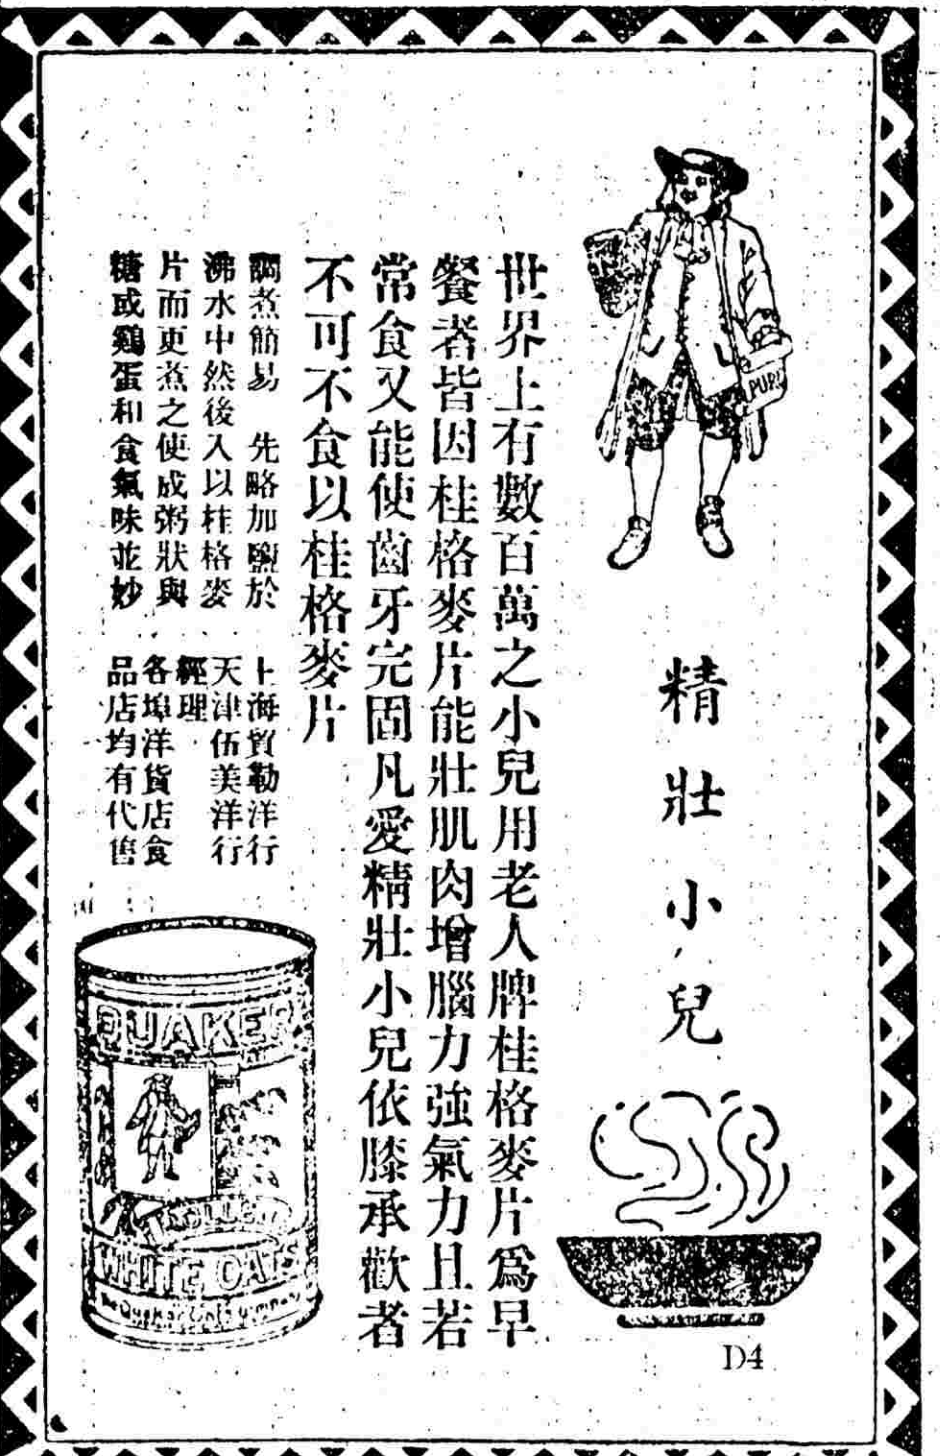 精壯小兒
世界上有數百萬之小兒用老人牌桂格麥片爲早
餐者皆因桂格麥片能壯肌肉增腦力強氣力且若
常食又能使齒牙完固凡愛精壯小兒依膝承歡者
不可不食以桂格麥片
調煮簡易 先略加鹽於
沸水中然後入以桂格麥
片而更煮之使成粥狀與
糖或鷄蛋和食氣味並妙
上海貿勒洋行
天津伍美洋行
經理
各埠洋貨店食
品店均有代售
PURE
QUAKER
WHITE OATS
The Quaker Oats Company
D4